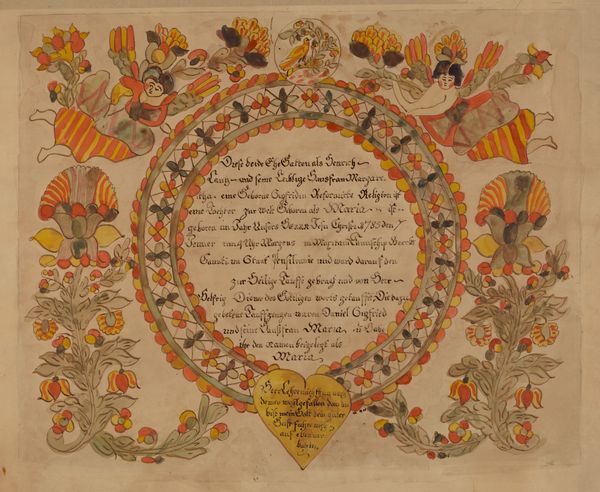 Diese beide Ehe Gatten als Henrich
Lautz und seine Ehlige Hausfrau Margare
tha eine Geborne Sigfridin Reformirte Religion ist
eine Tochter zur Welt Geboren als Maria ist
geboren im Jahr Unsers HERRN Jesu Christi 1785 den
Jenner um Uhr Morgens in Maxetani Taunschip Beercks
Caunti im Staat Pensilvanie und ward darauf den
zur Heilige Tauffe gebracht und von Herr
Helfrig Diener des Göttigen worts getaufft, Die dazu
gebetene Tauffzeugen waren Daniel Sigfried
und seine Haußfrau Maria u: Habe
ihr den Namen beigelegt als
Maria
Herr Lehre mich thun nach
deinem wohlgefallen dann du
bist mein Gott dein guter
Geist führe mich
auf ebener
bahn